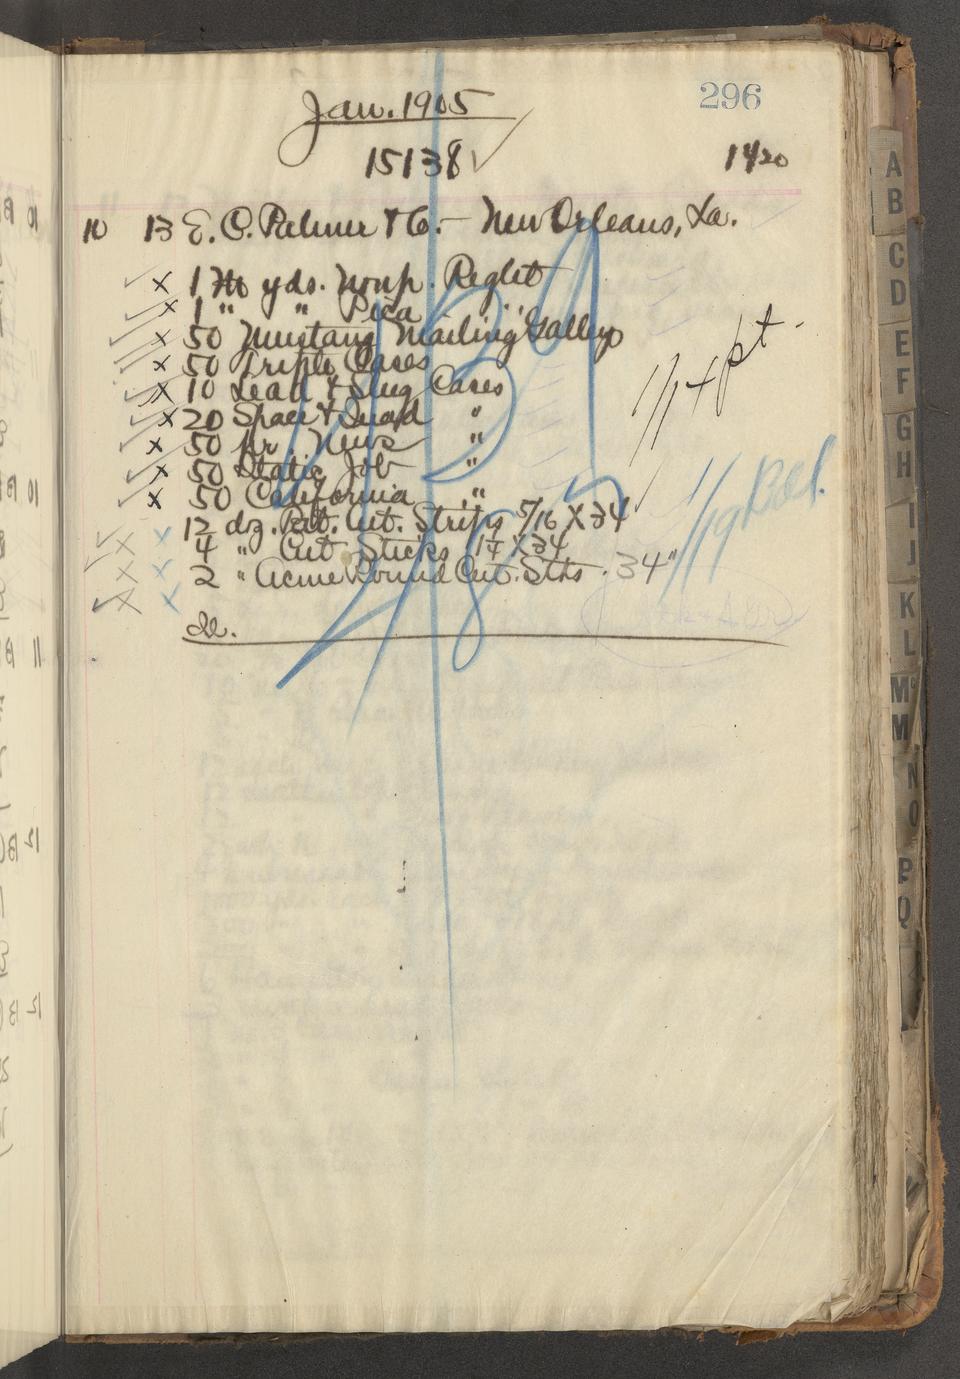 296
Jan. 1905
15138
1420
10 13 E. C. Palmer & Co. — New Orleans, La.
x 1 M yds. Nonp. Reglet
x 1 " " Pica "
x 50 Mustang Mailing Galleys
x 50 Triple Cases
x 10 Lead & Slug Cases
x 20 Space & Quad "
x 50 Nr. News "
x 50 Static Job "
x 50 California "
x 12 doz. Pat. Cut. Strips 5/16 X 34
x x 4 " Cut Sticks 1/4 X 34
x x 2 " Acme Round Cut. Stks. 34"
1/14 pt.
1/19 Bal.
A
B
C
D
E
F
G
H
I
J
K
L
Mc
M
N
O
P
Q